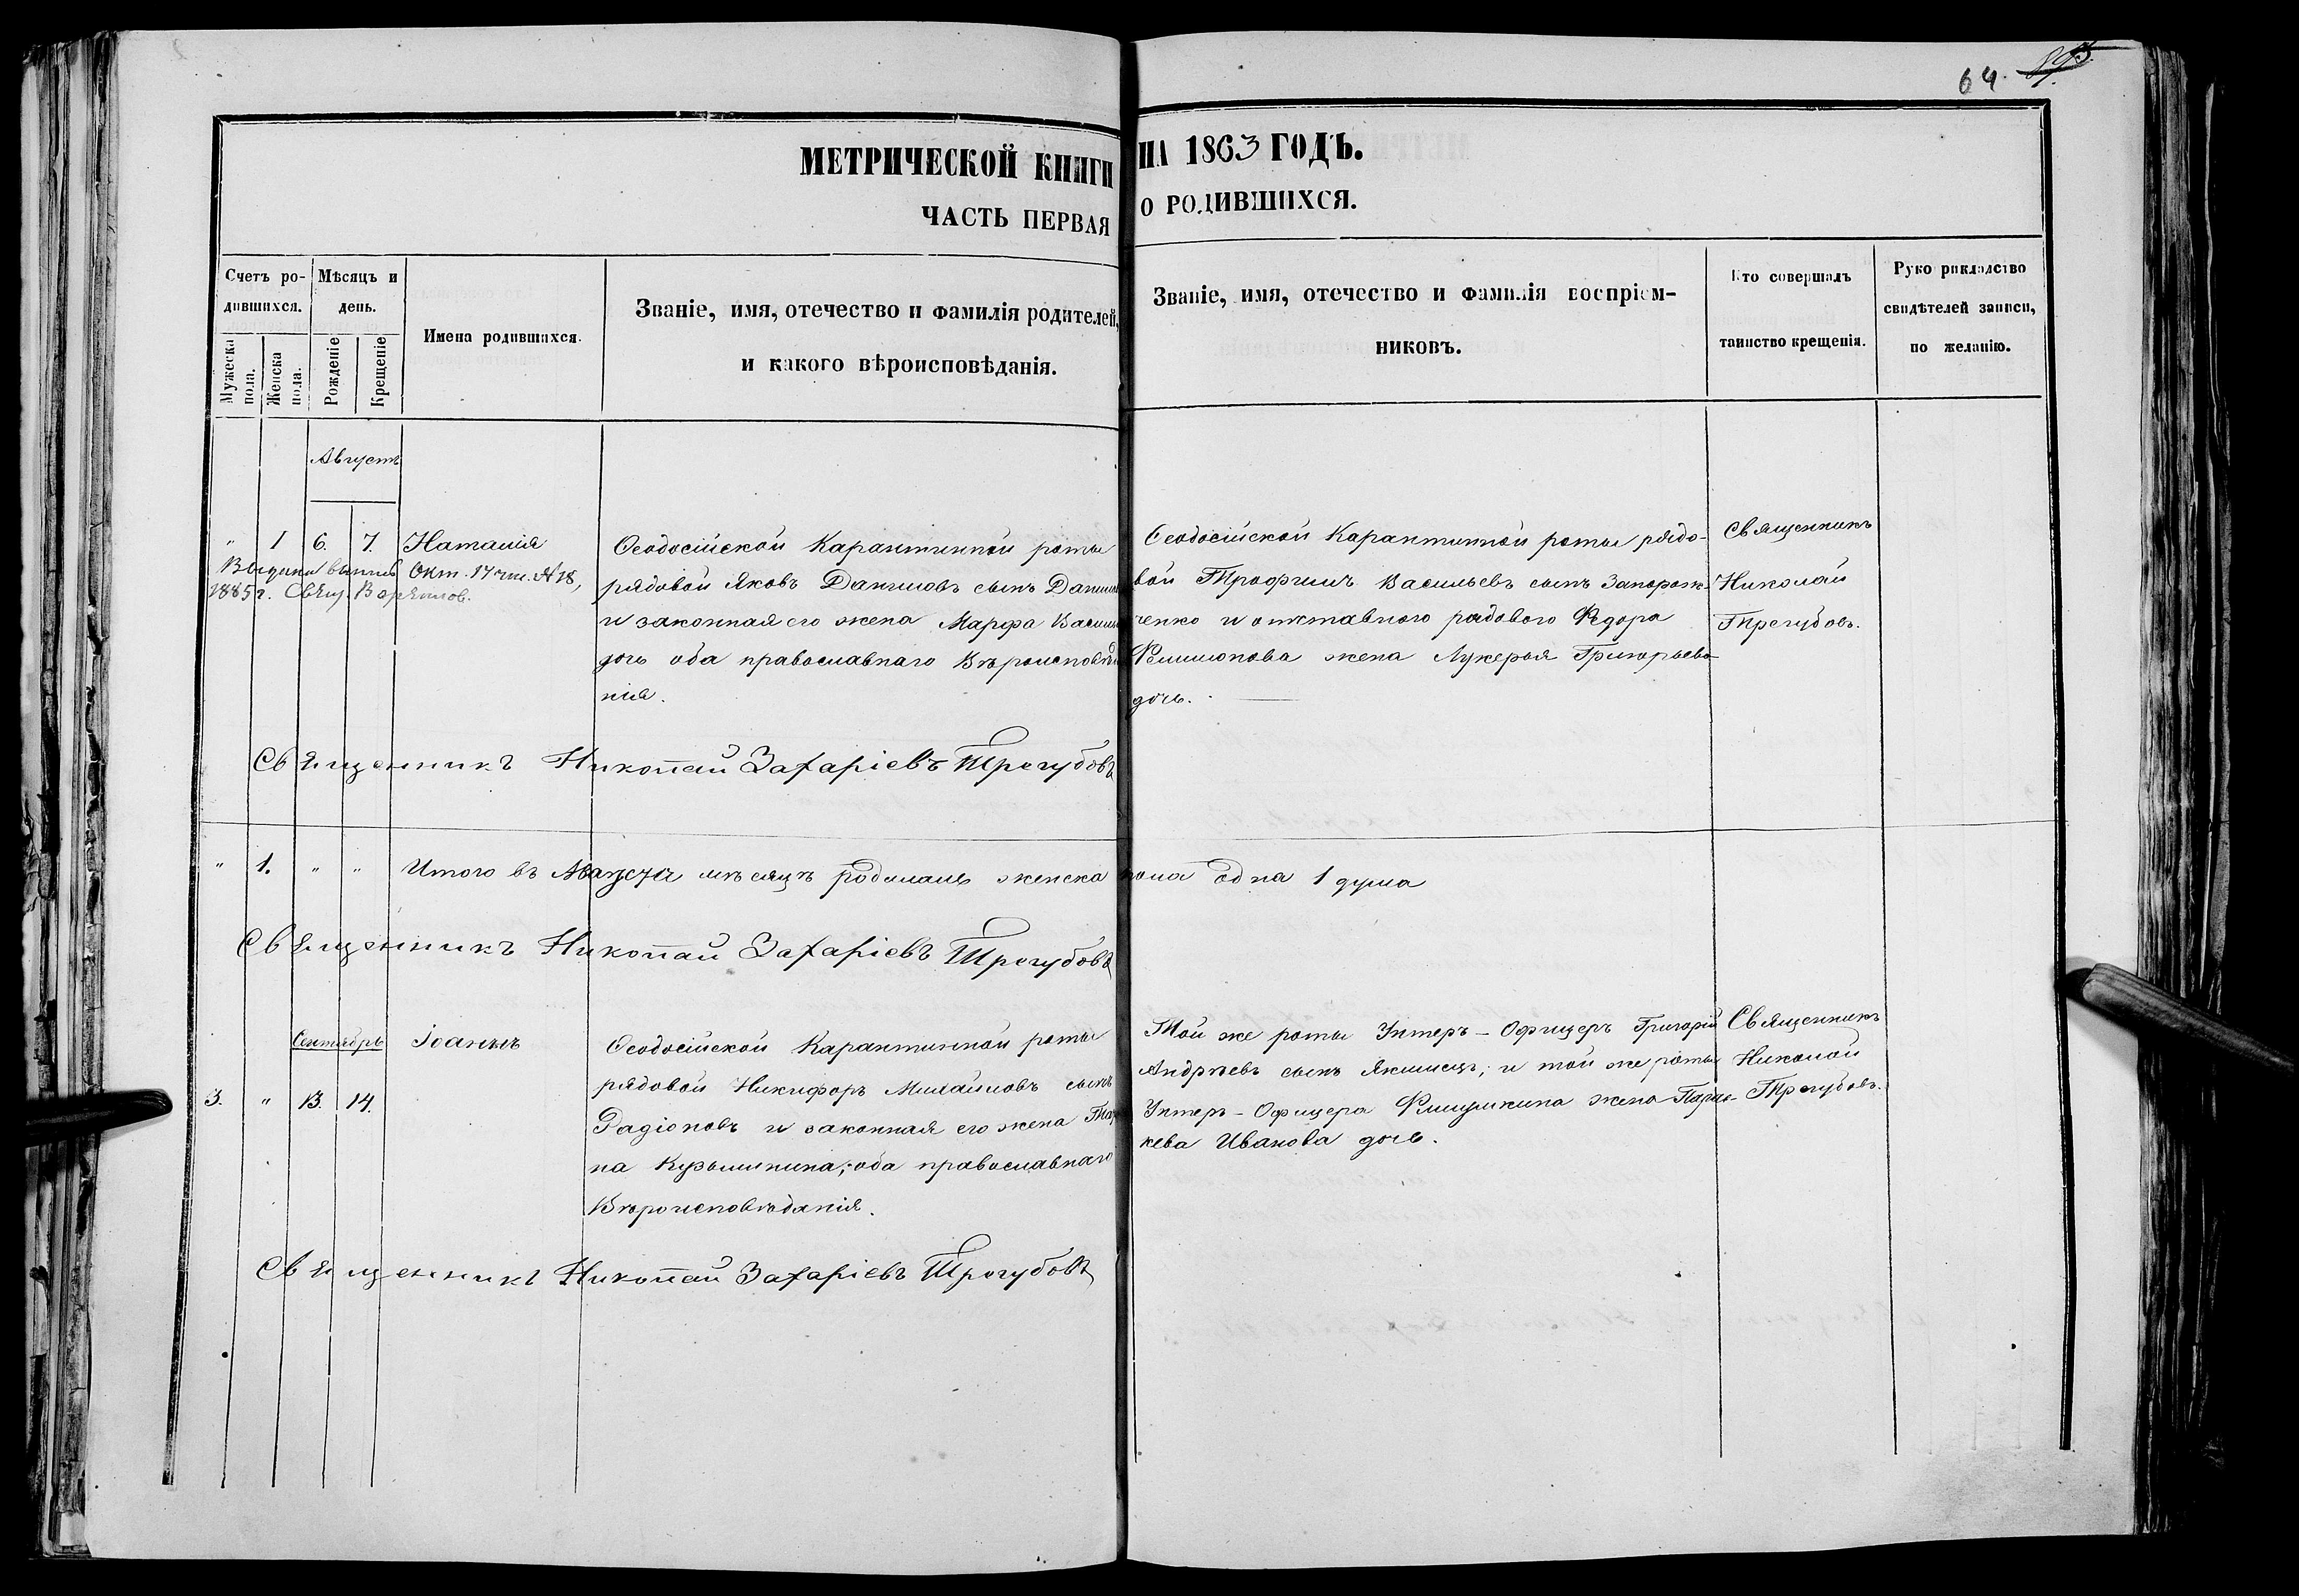 64.
МЕТРИЧЕСКОЙ КНИГИ НА 1863 ГОДЪ.
ЧАСТЬ ПЕРВАЯ О РОДИВШИХСЯ.
Счетъ ро-
дившихся.
Мужеска
пола.
Женска
пола.
Мѣсяцъ и
день.
Рожденіе
Крещеніе
Имена родившихся.
Званіе, имя, отечество и фамилія родителей,
и какого вѣроисповѣданія.
Званіе, имя, отечество и фамилія воспріем-
никовъ.
Кто совершалъ
таинство крещенія.
Руко рикладство
свидѣтелей записи,
по желанію.
Августъ
" 1 6. 7. Наталія
Выдана выпис. Окт. 17 чис. № 18,
1885 г. Свящ.
Ѳеодосійской Карантинной роты
рядовой Яковъ Даниловъ сынъ
и законная его жена Марфа
дочь оба православнаго Вѣроисповѣда
нія.
Ѳеодосійской Карантинной роты рядо-
вой Трофимъ Васильевъ сынъ Запорож-
ченко и отставного рядового Ѳедора
Филимонова жена Лукерья Григорьева
дочь.
Священникъ
Николай
Трегубовъ.
Священникъ Николай Захаріевъ Трегубовъ
" 1. " " Итого въ Августѣ мѣсяцѣ родилась женска пола одна 1 душа
Священникъ Николай Захаріевъ Трегубовъ
Сентябрь
3. " 13. 14.
Іоаннъ
Ѳеодосійской Карантинной роты
рядовой Никифоръ Михайловъ сынъ
Радіоновъ и законная его жена
на Кузьминина; оба православнаго
Вѣроисповѣданія.
Той же роты Унтеръ-Офицеръ Григорій
Андрѣевъ сынъ и той же роты
Унтеръ-Офицера жена Парас-
кева Иванова дочь.
Священникъ
Николай
Трегубовъ.
Священникъ Николай Захаріевъ Трегубовъ